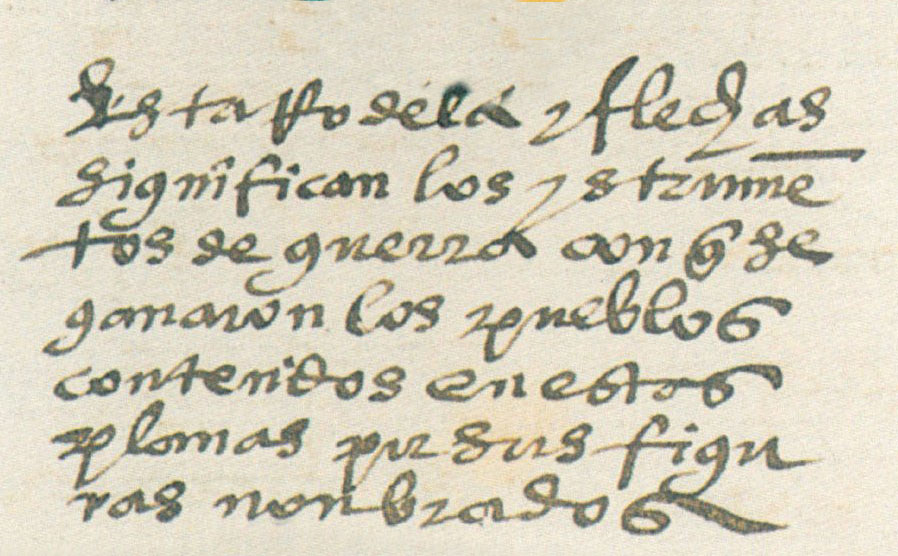 Esta Rodela y flechas
significan los ystrume̅
tos de guerra con q̃ se
ganaron los pueblos
contenidos en estas
planas pur sus figu
ras nonbrados